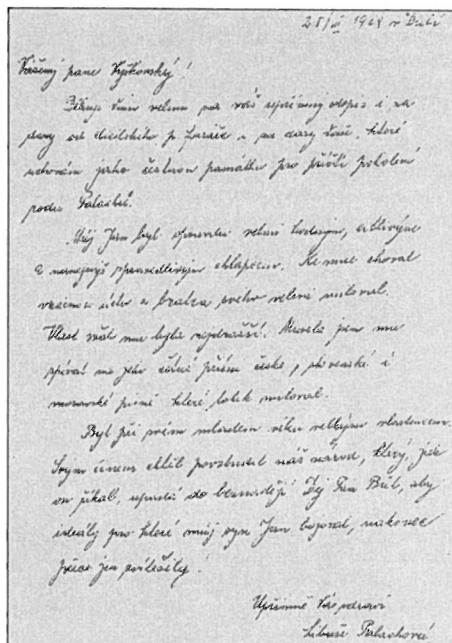 Vážený pane Vyškovský!
Děkuji Vám velmi za váš upřímný dopis i za
dary od p. faráře a za dary Vaše, které
uchovám jako čestnou památku pro příští pokolení
rodu Palachů.
Můj Jan byl opravdu velmi hodným, citlivým
a nanejvýš spravedlivým chlapcem. Ke mně choval
vzácnou úctu a bratra svého velmi miloval.
Vlast však mu byla nejdražší. Musela jsem mu
zpívat na jeho přání české, slovenské i
moravské písně které tolik miloval.
Byl při svém mladém věku velkým vlastencem.
Svým činem chtěl povzbudit náš národ, který, jak
on říkal, upadá do beznaděje. Dej Pán Bůh, aby
ideály pro které můj syn Jan bojoval, nakonec
přece jen zvítězily.
Upřímně Vás zdraví
Libuše Palachová